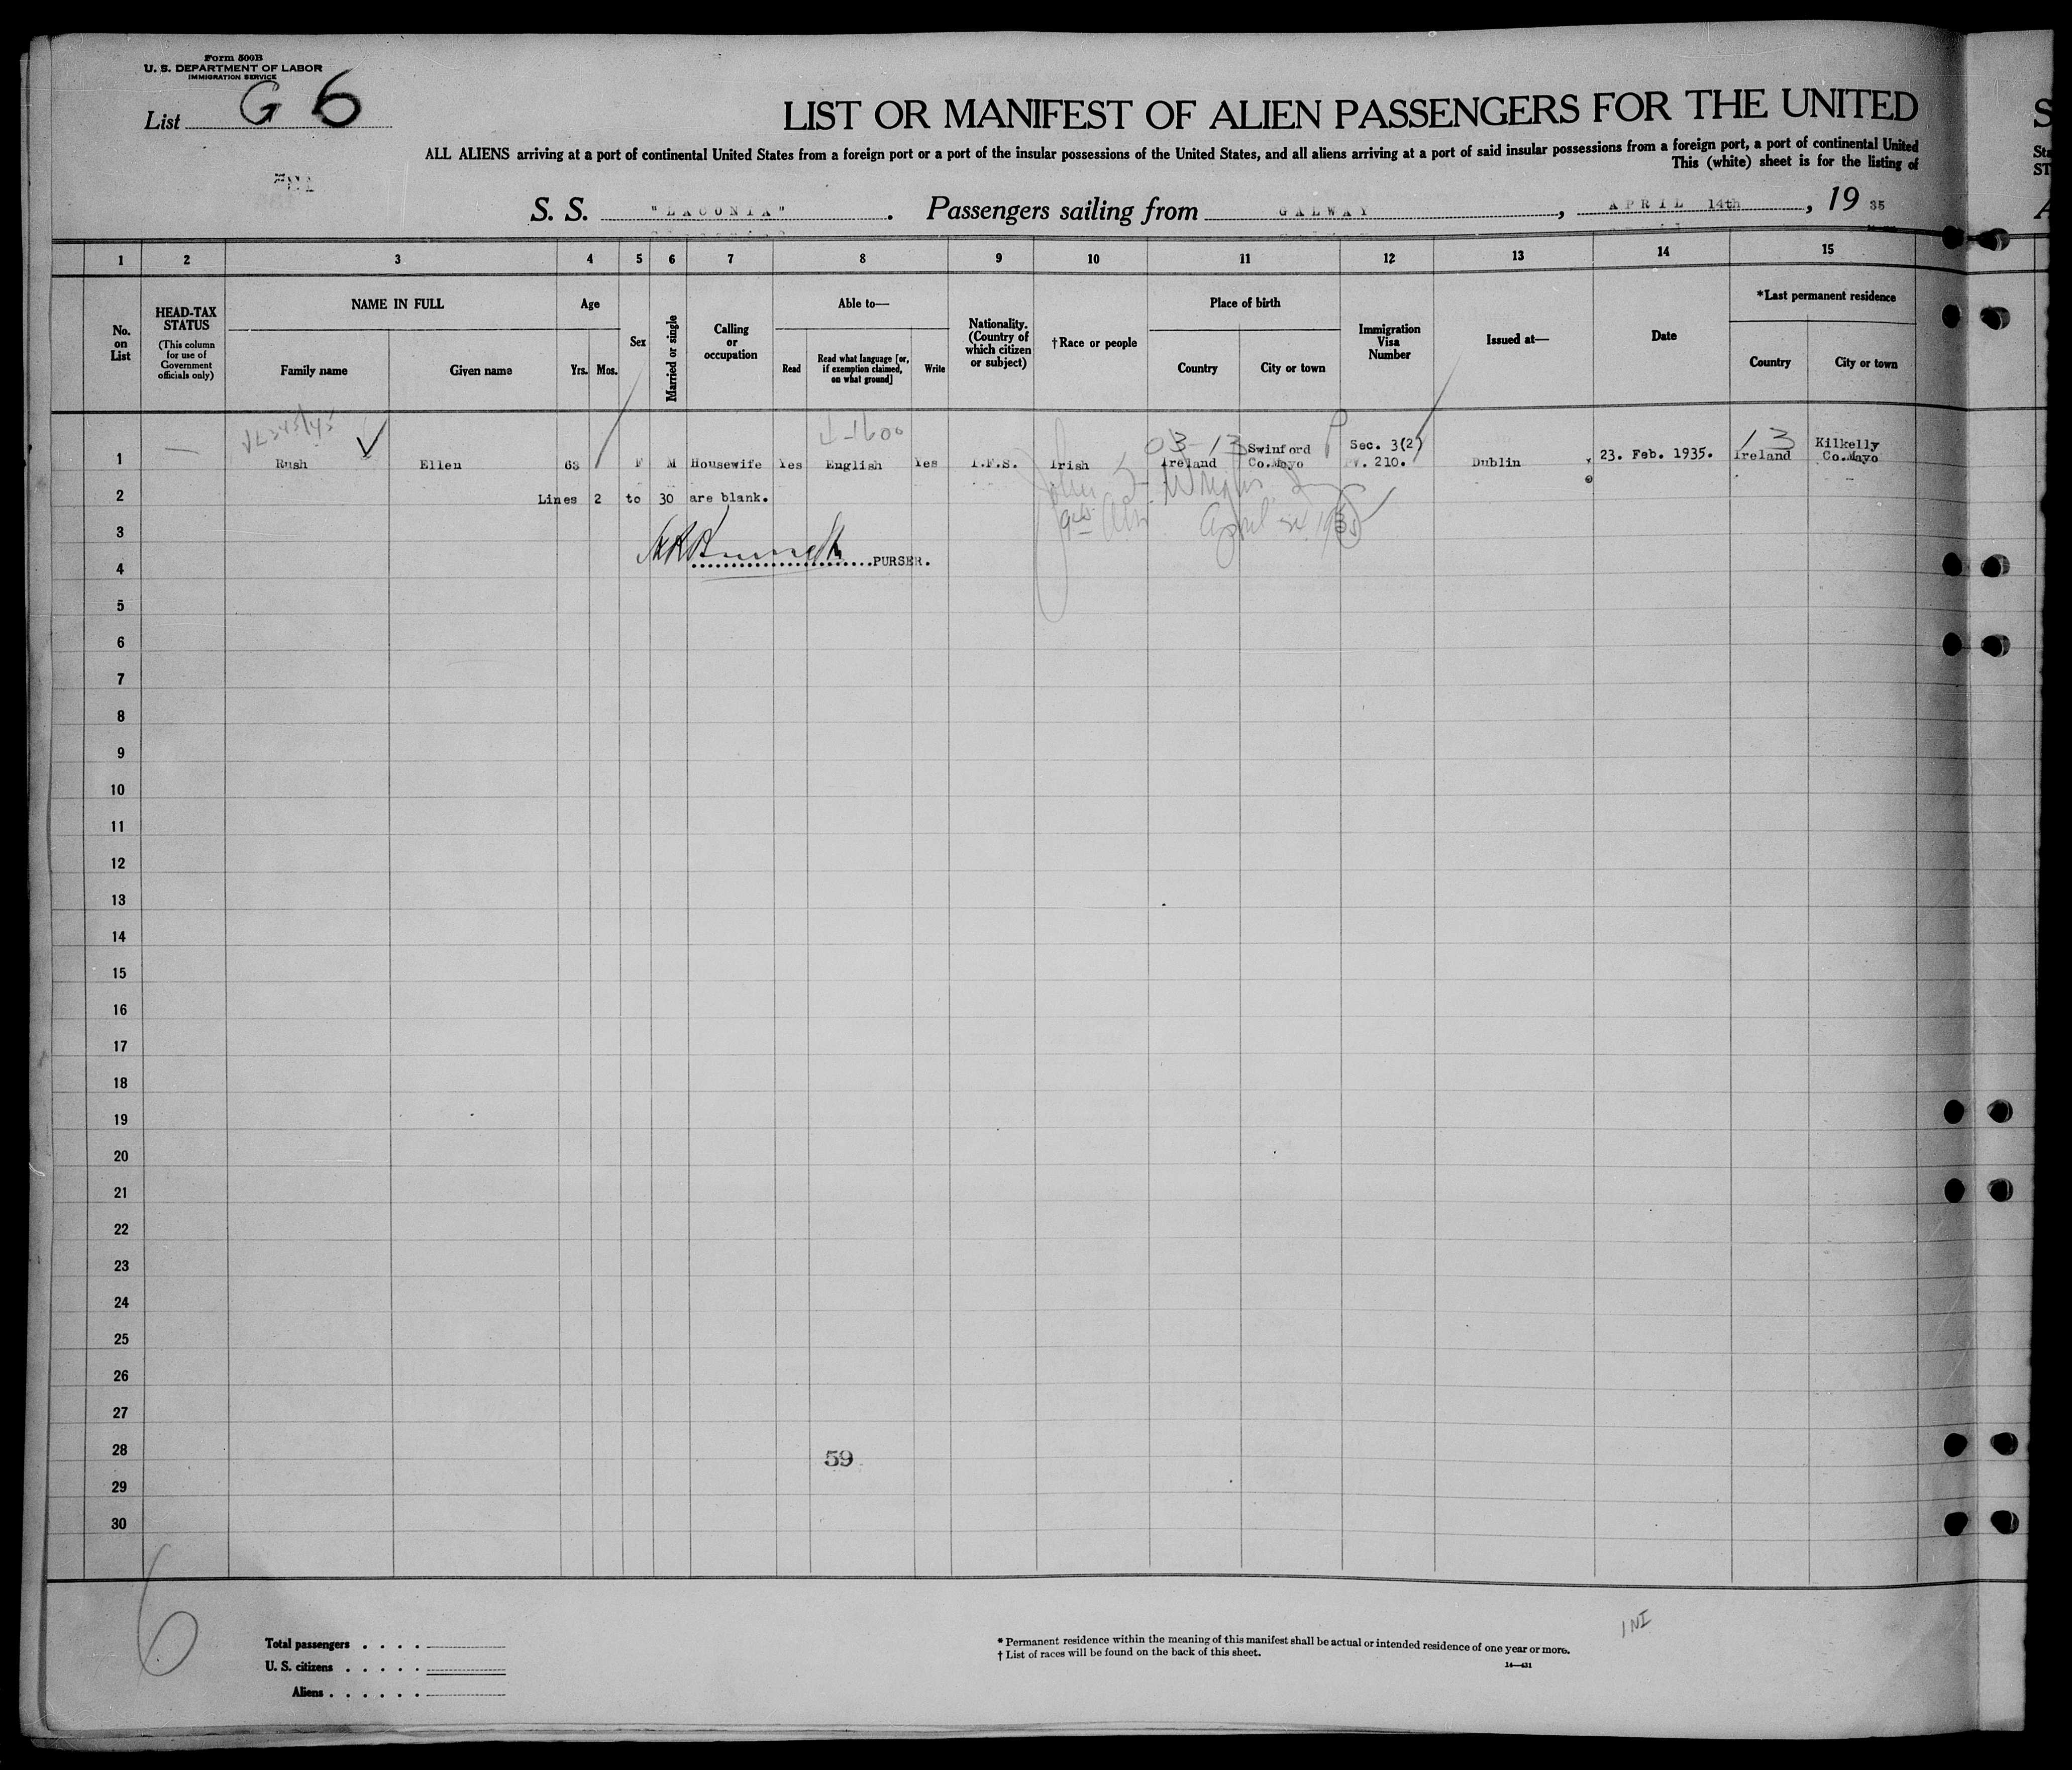 Form 500B
U. S. DEPARTMENT OF LABOR
IMMIGRATION SERVICE
List G 6
LIST OR MANIFEST OF ALIEN PASSENGERS FOR THE UNITED
ALL ALIENS arriving at a port of continental United States from a foreign port or a port of the insular possessions of the United States, and all aliens arriving at a port of said insular possessions from a foreign port, a port of continental United
This (white) sheet is for the listing of
S. S. "LACONIA" . Passengers sailing from GALWAY , APRIL 14th , 19 35
1 2 3 4 5 6 7 8 9 10 11 12 13 14 15
No. on List
HEAD-TAX STATUS
(This column for use of Government officials only)
NAME IN FULL
Family name Given name
Age
Yrs. Mos.
Sex
Married or single
Calling or occupation
Able to—
Read
Read what language [or, if exemption claimed, on what ground]
Write
Nationality. (Country of which citizen or subject)
†Race or people
Place of birth
Country City or town
Immigration Visa Number
Issued at—
Date
*Last permanent residence
Country City or town
03-13 13
1 — Rush Ellen 63 F M Housewife Yes English Yes I.F.S. Irish Ireland Swinford Co.Mayo Sec. 3(2) 210. Dublin 23. Feb. 1935. Ireland Kilkelly Co.Mayo
2 Lines 2 to 30 are blank.
3
4 PURSER.
5
6
7
8
9
10
11
12
13
14
15
16
17
18
19
20
21
22
23
24
25
26
27
28 59
29
30
6
1 NI
Total passengers
U. S. citizens
Aliens
* Permanent residence within the meaning of this manifest shall be actual or intended residence of one year or more.
† List of races will be found on the back of this sheet.
14—431